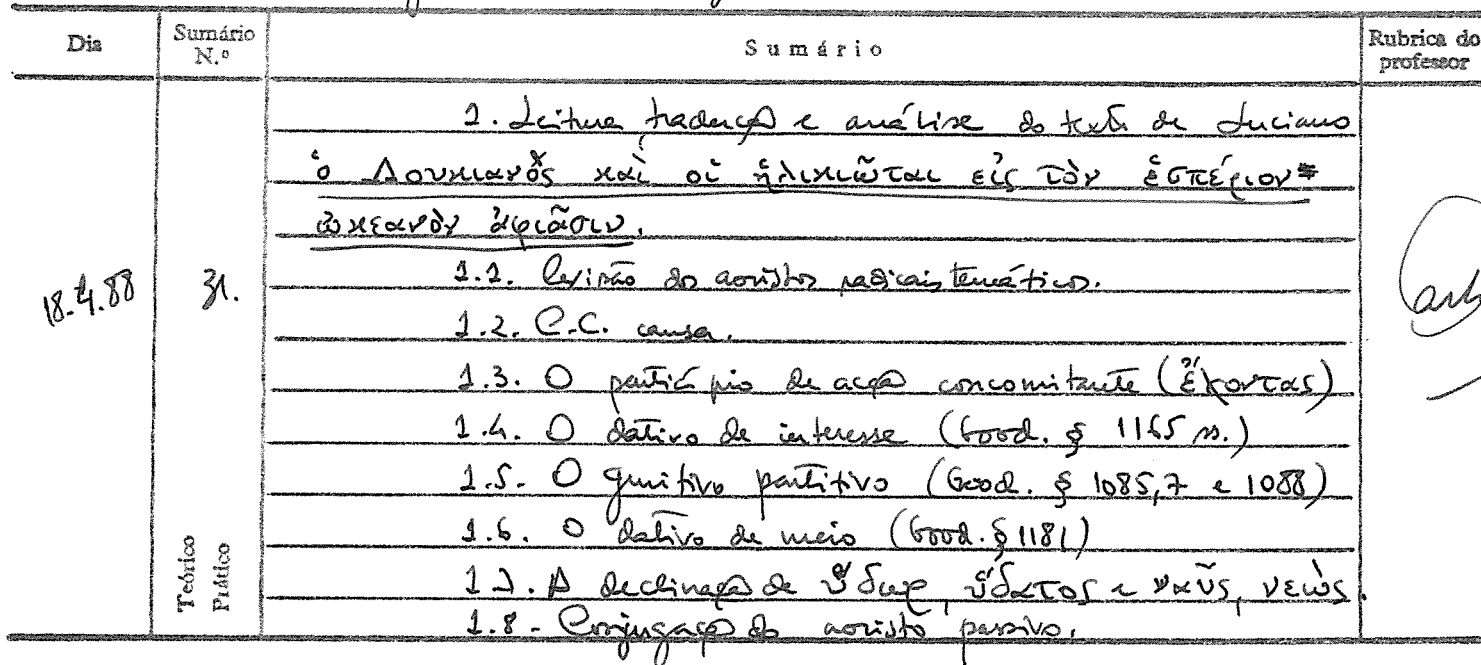 Dia
Sumário N.º
Sumário
Rubrica do professor
1. Leitura tradução e análise do texto de Luciano
ὁ Λουκιανὸς καὶ οἱ ἡλικιῶται εἰς τὸν ἑσπέριον=
ὠκεανὸν ἀφιᾶσιν.
18.4.88
31.
1.1. Revisão dos aoristos radicais temáticos.
1.2. C.C. causa.
1.3. O particípio de acção concomitante (ἔχοντας)
1.4. O dativo de interesse (Good. § 1165 ss.)
1.5. O genitivo partitivo (Good. § 1085,7 e 1088)
1.6. O dativo de meio (Good. § 1181)
1.7. A declinação de ὕδωρ, ὕδατος e ναῦς, νεώς.
1.8 - Conjugação do aoristo passivo.
Teórico
Prático